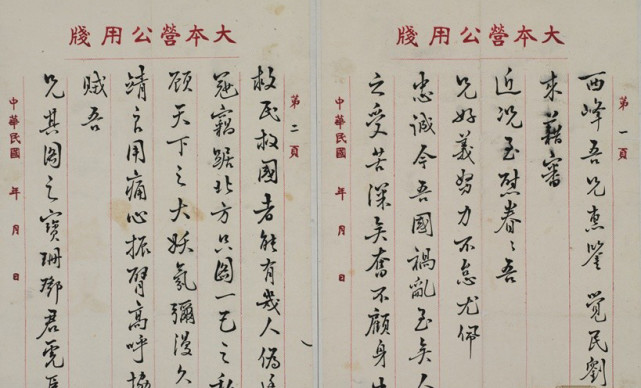 大本營公用牋
第一頁
西峰吾兄惠鑒 覺民劉
來藉審
近況至慰眷〻吾
兄好義努力不怠尤佩
忠誠今吾國禍亂至矣人
之受苦深矣奮不顧身
中華民國 年 月 日
大本營公用牋
第二頁
救民救國者能有幾人偽
竊踞北方只圖一己之私
顧天下之大妖氛彌漫久
靖言用痛心振臂高呼協
賊吾
兄其圖之寶珊鄧君虎
中華民國 年 月 日